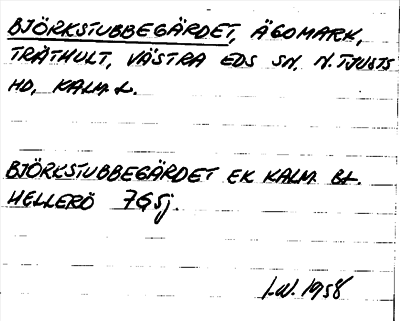 BJÖRKSTUBBEGÄRDET, ÄGOMARK,
TRÄTHULT, VÄSTRA EDS SN, N. TJUSTS
HD, KALM. L.
BJÖRKSTUBBEGÄRDET EK KALM. BL.
HELLERÖ 7G 5j.
I.W. 1958